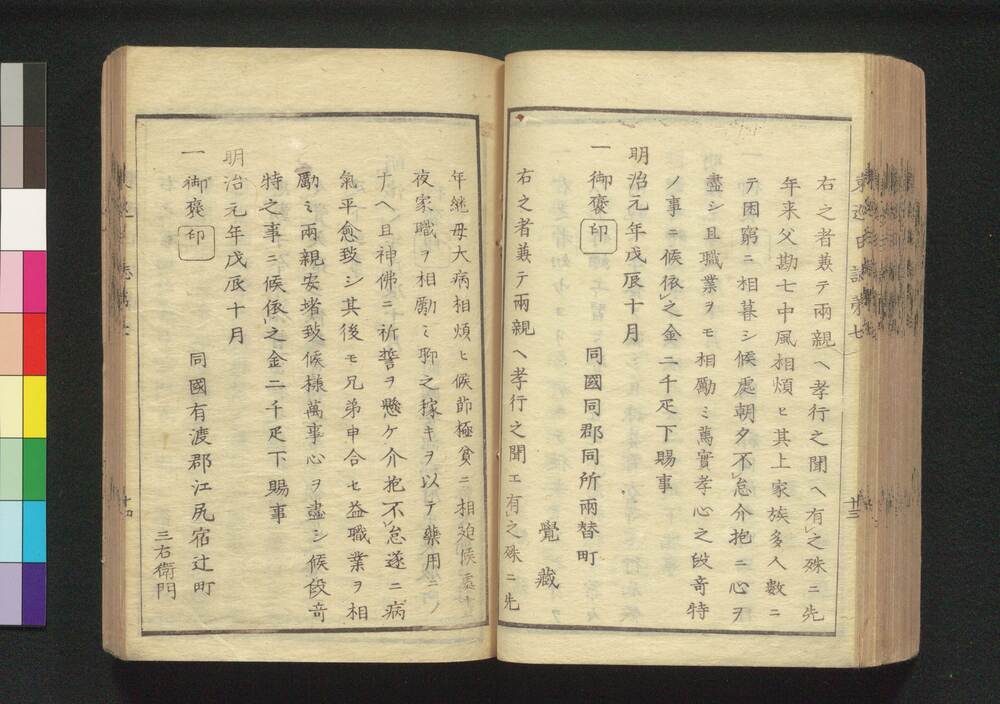 右之者兼テ兩親ヘ孝行之聞ヘ有之殊ニ先
年来父勘七中風相煩ヒ其上家族多人數ニ
テ困窮ニ相暮シ候處朝夕不怠介抱ニ心ヲ
盡シ且職業ヲモ相勵ミ萬實孝心之段奇特
ノ事ニ候依之金二千疋下賜事
明治元年戊辰十月
一御褒印
同國同郡同所兩替町
覺藏
右之者兼テ兩親ヘ孝行之聞エ有之殊ニ先
年継母大病相煩ヒ候節極貧ニ相迫候處
夜家職ヲ相勵ミ聊之稼キヲ以テ藥用ニノ
ナヘ且神佛ニ祈誓ヲ懸ケ介抱不怠遂ニ病
氣平愈致シ其後モ兄弟申合セ益職業ヲ相
勵ミ兩親安堵致候樣萬事心ヲ盡シ候段奇
特之事ニ候依之金二千疋下賜事
明治元年戊辰十月
一御褒印
同國有渡郡江尻宿辻町
三右衛門
十三
十四